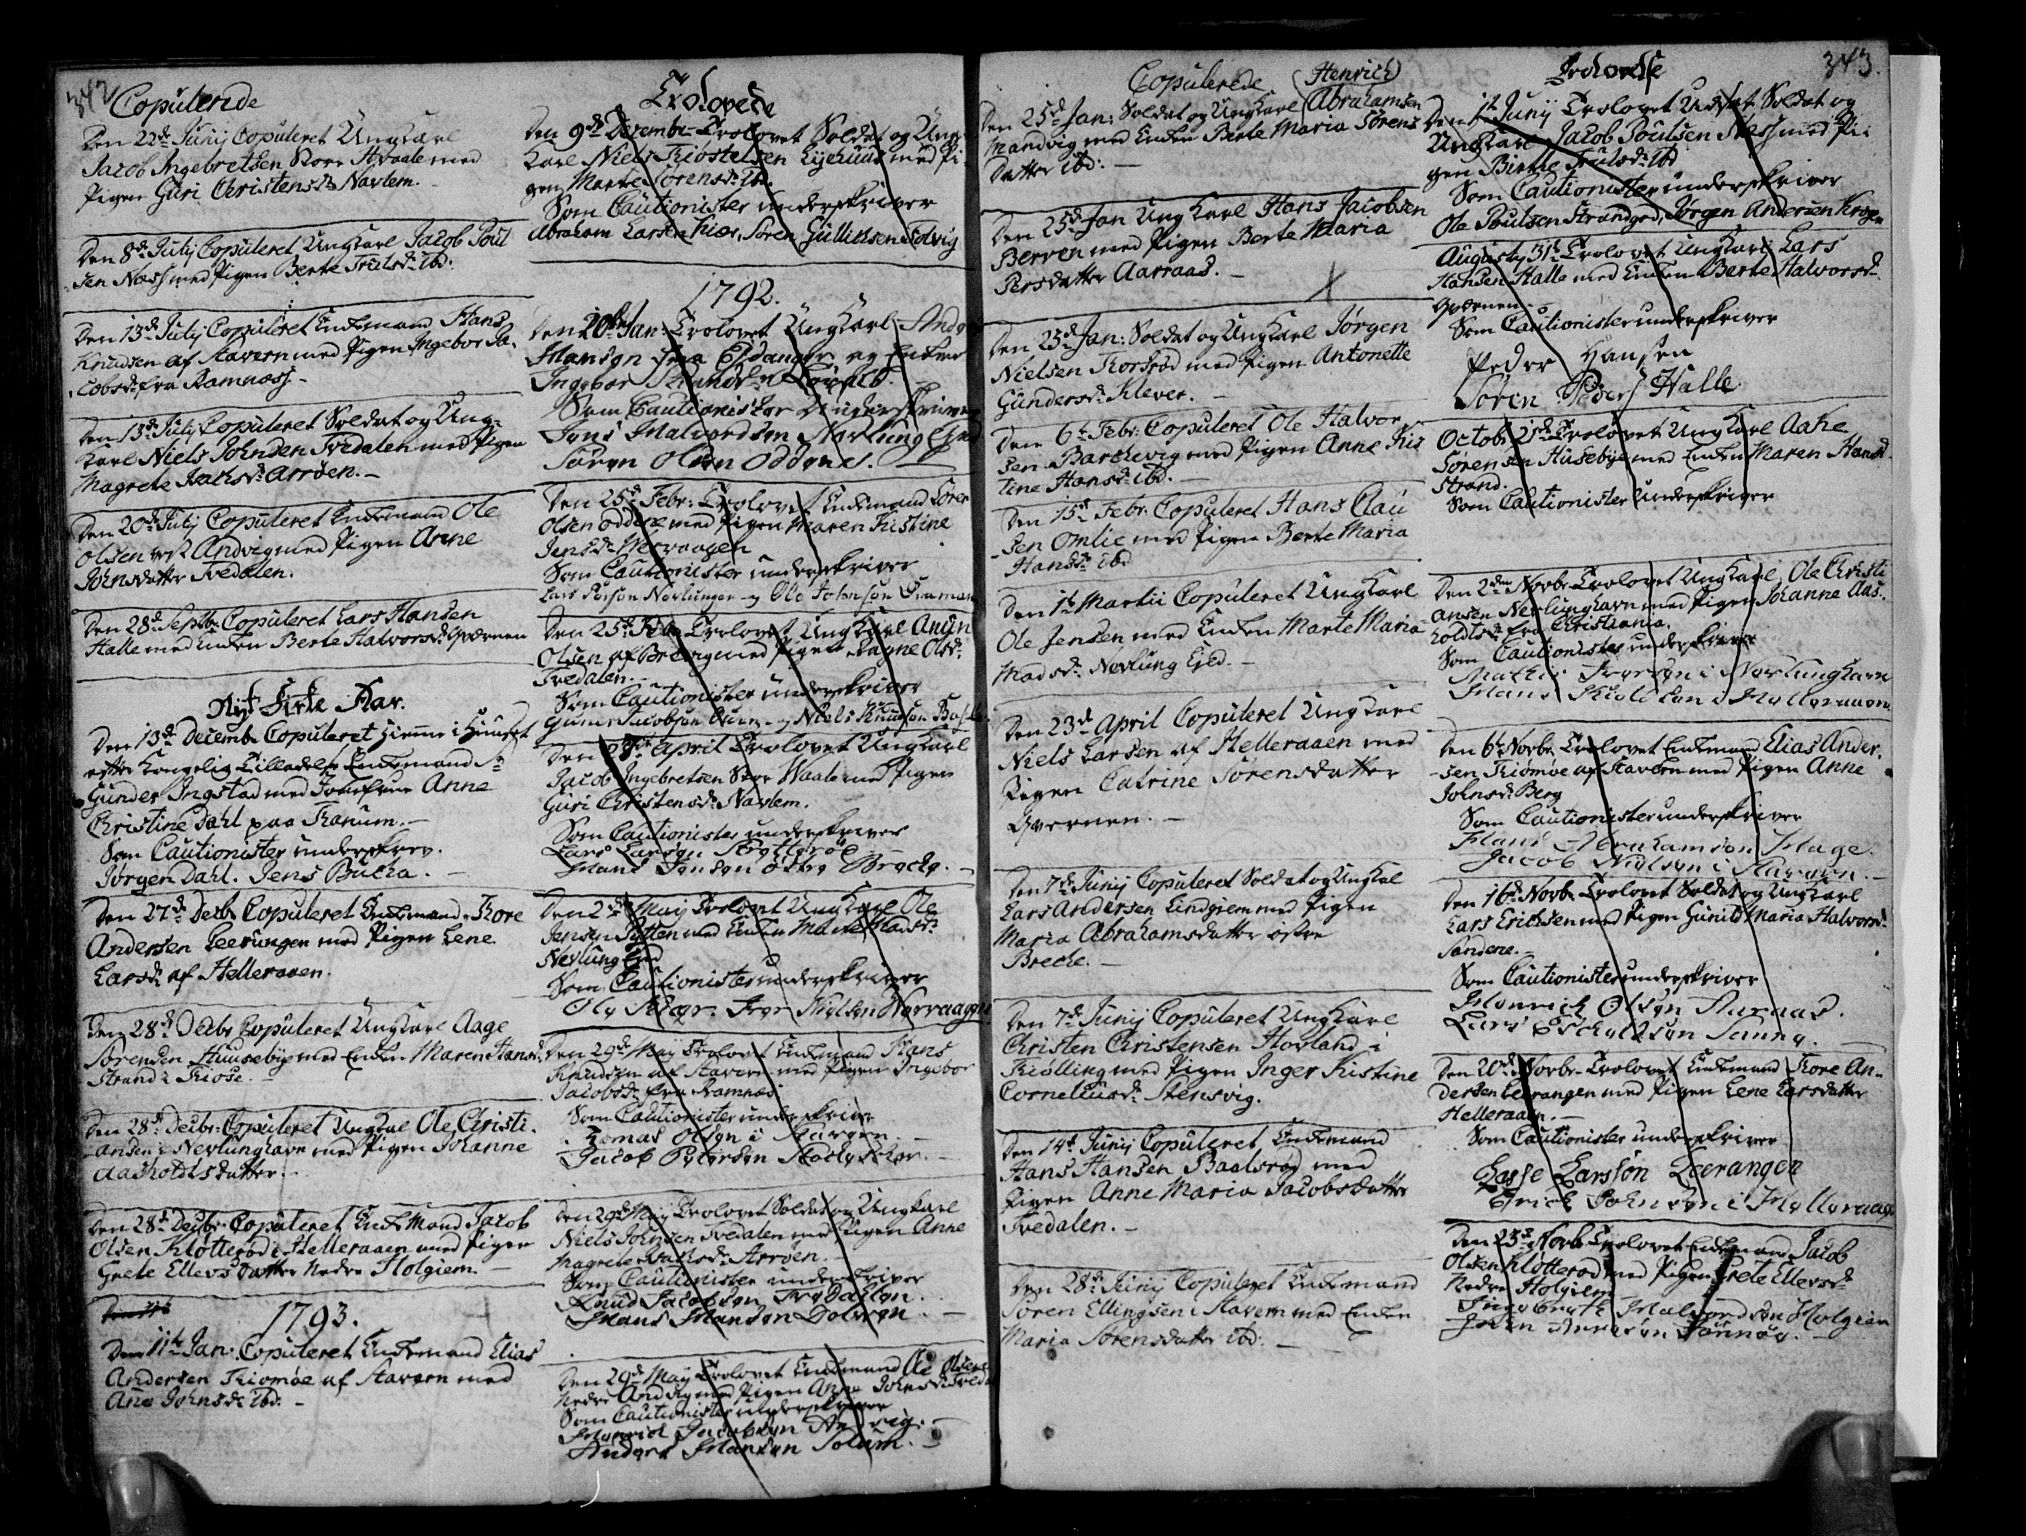 342
Copulerede
Den 22de Junij Copuleret Ungkarl
Jacob Ingebretsen Store Waale med
Pigen Guri Christensdr Navlem.
Den 8de Julij Copuleret Ungkarl Jacob Poul
sen Næss med Pigen Berte Trulsdr ibd:
Den 13de Julij Copuleret Enkemand Hans
Knudsen af Stavern med Pigen Ingebor Ja-
cobsdr fra Ramnæss.
Den 13de Julij Copuleret Soldat og Ung-
karl Niels Johnsen Tvedalen med Pigen
Magrete Isaksdr Arrøen.
Den 20de Julij Copuleret Enkemand Ole
Olsen Andvig med Pigen Anne
Johnsdatter Tvedalen.
Den 28de Septbr Copuleret Lars Hansen
Halle med Enken Berte Halvorsdr Qværnen
Nyt Kirke Aar.
Den 13de Decemb. Copuleret hiemme i Huuset
efter Kongelig Tilladelse Enkemand Sr
Gunder Ingstad med Jomfrue Anne
Christine Dahl paa Fanum.
Som Cautionister underskrev.
Jørgen Dahl. Jens Bucha.
Den 27de Decbr Copuleret Enkemand Tore
Andersen Leerungen med Pigen Lene
Larsdr af Helleraaen.
Den 28de Decbr Copuleret Ungkarl Aage
Sørensen Huusebye med Enken Maren Hansdr
Strand i Kiose.
Den 28de Decbr: Copuleret Ungkal Ole Christi-
ansen i Nevlunghavn med Pigen Johanne
Aasholdtsdatter.
Den 28de Decbr: Copuleret Enkemand Jacob
Olsen Kløtterød i Helleraaen med Pigen
Grete Ellevsdatter Nedre Holgiem.
1793.
Den 11te Jan: Copuleret Enkemand Elias
Andersen Kiømøe af Stavern med
Ane Johnsdr ibd.
Trolovede
Den 9de Decembr Trolovet Soldat og Ung-
karl Niels Kiøstelsen Eyekuus med Pi-
gen Marte Sørensdr ibd.
Som Cautionister underskriver
Abraham Larsen Kiær, Søren Gulliksen
1792.
Den 20de Jan: Trolovet Ungkarl Anders
Hansen fra Eidanger og Enken
Ingebor
Som Cautionister Underskriver
Jens Halvordsen Nevlung
Søren Olsen Oddene.
Den 25de Febr: Trolovet Enkemand Søren
Olsen Oddene med Pigen Maren Kistine
Jensdr Wervaagen
Som Cautionister underskriver
Lars Persøn Nevlungen og Ole Johnsøn
Den 25de Febr Trolovet Ungkarl
Olsen af Brevig med Pigen Ragne Olsdr
Tvedalen.
Som Cautionister underskriver
Jacobsøn og Niels Knudsøn
Den April Trolovet Ungkarl
Jacob Ingebretsen Store Waale med Pigen
Guri Christensdr Navlem.
Som Cautionister underskriver
Lars Larsøn
Hans Jensøn østre Brecke.
Den 2de Maij Trolovet Ungkarl Ole
Jensen med Enken Marte Madsdr
Nevlung Ejed
Som Cautionister underskriver
Ole Iver Nielsen Werwaagen
Den 29de Maij Trolovet Enkemand Hans
Knudsen af Stavern med Pigen Ingebor
Jacobsdr fra Ramnæs
Som Cautionister underskriver
Tomas Olsen i Stavern.
Jacob Pedersøn
Den 29de Maij Trolovet Soldat og Ungkarl
Niels Johnsen Tvedalen med Pigen Anne
Magrete Isaksdr Arrøen.
Som Cautionister underskriver
Knud Jacobsøn Tvedahlen.
Hans Hansøn
Den 29de Maij Trolovet Enkemand Ole Olsen
Nedre Andvig med Pigen Anne Johnsdr Tveda
Som Cautionister underskriver
Henrich Jacobsøn Andvig.
Anders Hansøn Solum.
343.
Copulerede
Henrich
Den 25de Jan: Soldat og Ungkarl Abrahamsen
Mandvig med Enken Berte Maria Sørens
datter ibd:
Den 25de Jan Ungkarl Hans Jacobsen
Berven med Pigen Berte Maria
Persdatter Aarraas.
X
Den 25de Jan: Soldat og Ungkarl Jørgen
Nielsen Korsrød med Pigen Antonette
Gundersdr Klever.
Den 6te Febr: Copuleret Ole Halvor-
sen Barthevig med Pigen Anne Kis
tine Hansdr ibd.
Den 15de Febr. Copuleret Hans Clau
sen Omlie med Pigen Berte Maria
Hansdr ibd
Den 1te Martii Copuleret Ungkarl
Ole Jensen med Enken Marte Maria
Madsdr Nevlung Ejed.
Den 23de April Copuleret Ungkarl
Niels Larsen af Helleraaen med
Pigen Catrine Sørensdatter
Qvernen.
Den 7de Junij Copuleret Soldat og Ungkal
Lars Andersen Lindgiem med Pigen
Maria Abrahamsdatter østre
Brecke.
Den 7de Junij Copuleret Ungkarl
Christen Christensen Hovland i
Kiølling med Pigen Inger Kistine
Corneliusdr Stensvig.
Den 14de Junij Copuleret Enkemand
Hans Hansen Baalsrød med
Pigen Anne Maria Jacobsdatter
Tvedalen.
Den 28de Junij Copuleret Enkemand
Søren Ellingsen i Stavern med Enken
Maria Sørensdatter ibd.
Trolovede
Den 1te Junij Trolovet Soldat og
Ungkarl Jacob Poulsen Næss med Pi-
gen Birtte Trulsdr ibd
Som Cautionister underskriver
Ole Poulsen Strandgod, Jørgen Andersen
Augustij 31te Trolovet Ungkarl Lars
Hansen Halle med Enken Berte Halvorsdr
Qværnen.
Som Cautionister underskriver
Peder Hansen
Søren Peders Halle
Octobr Trolovet Ungkarl Aake
Sørensen Husebye med Enken Maren Hansdr
Strand.
Som Cautionister Underskriver
Den 2den Novbr Trolovet Ungkarl Ole Christi
ansen Nevlunghavn med Pigen Johanne Aas-
holdtsdr fra Christiania.
Som Cautionister underskriver
Mathis Iversøn i Nevlunghavn
Hans i Helleraaen
Den 6te Novbr Trolovet Enkemand Elias Ander-
sen Kiømøe af Stavern med Pigen Anne
Johnsdr Berg
Som Cautionister underskriver
Hans Abrahamsøn Hage.
Jacob Nielsøn i Stavern.
Den 16de Novbr Trolovet Soldat og Ungkarl
Lars Ericksen med Pigen Gunild Maria Halvorsdr
Sandene.
Som Cautionister underskriver
Henrich Olsøn Aaraas.
Lars
Den 20de Novbr Trolovet Enkemand Tore An-
dersen Leerangen med Pigen Lene Larsdatter
Helleraaen.
Som Cautionister underskriver
Lasse Larssøn Leerangen
Erick Johnsøn i Helleraaen
Den 23de Novbr Trolovet Enkemand Jacob
Olsen Kløtterød med Pigen Grete Ellevsdr
Nedre Holgiem
Halvordsøn Holgiem